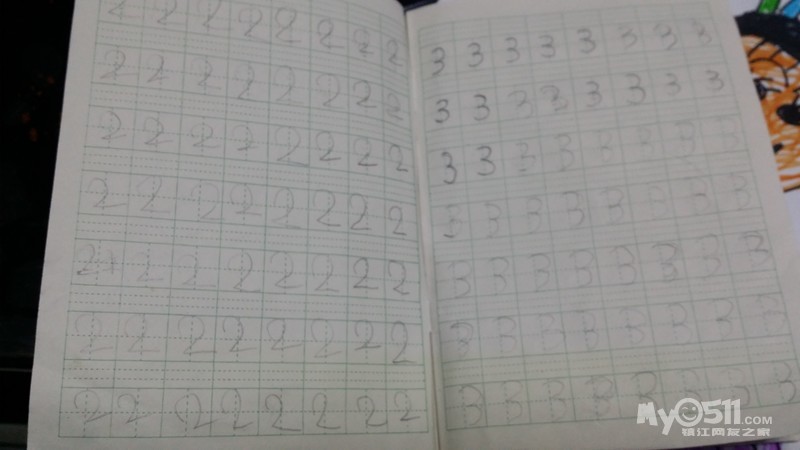 2 2 2 2 2 2 2 2
2 2 2 2 2 2 2 2
2 2 2 2 2 2 2 2
2 2 2 2 2 2 2 2
2 2 2 2 2 2 2 2
2 2 2 2 2 2 2 2
2 2 2 2 2 2 2 2
3 3 3 3 3 3 3 3
3 3 3 3 3 3 3 3
3 3 3 3 3 3 3 3
3 3 3 3 3 3 3 3
3 3 3 3 3 3 3 3
3 3 3 3 3 3 3 3
3 3 3 3 3 3 3 3
My0511.com
镇江网友之家